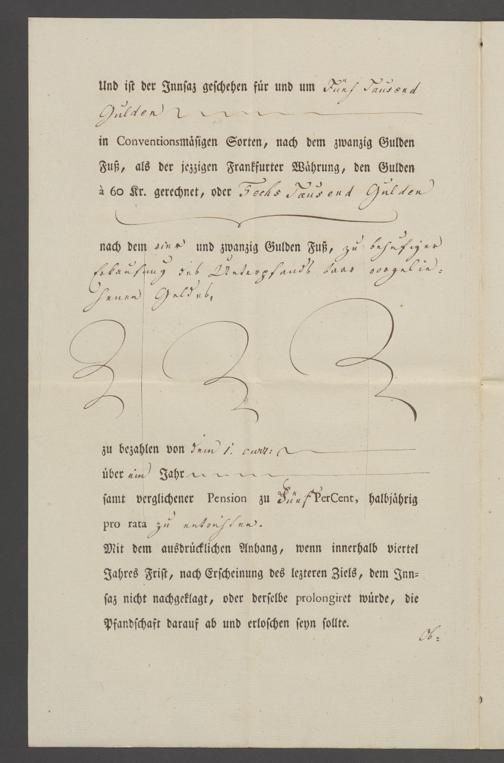 Und ist der Innsaz geschehen für und um Fünf Tausend
Gulden
in Conventionsmäsigen Sorten, nach dem zwanzig Gulden
Fuß, als der jezzigen Frankfurter Währung, den Gulden
à 60 Kr. gerechnet, oder Sechs Tausend Gulden
nach dem vier und zwanzig Gulden Fuß, zu behufiger
Erbauung des Unterpfands baar vorgelie-
henen Geldes,
zu bezahlen von dem 1. curr:
über ein Jahr
samt verglichener Pension zu Fünf PerCent, halbjährig
pro rata zu entrichten.
Mit dem ausdrücklichen Anhang, wenn innerhalb viertel
Jahres Frist, nach Erscheinung des lezteren Ziels, dem Inn-
saz nicht nachgeklagt, oder derselbe prolongiret würde, die
Pfandschaft darauf ab und erloschen seyn sollte.
Ob-